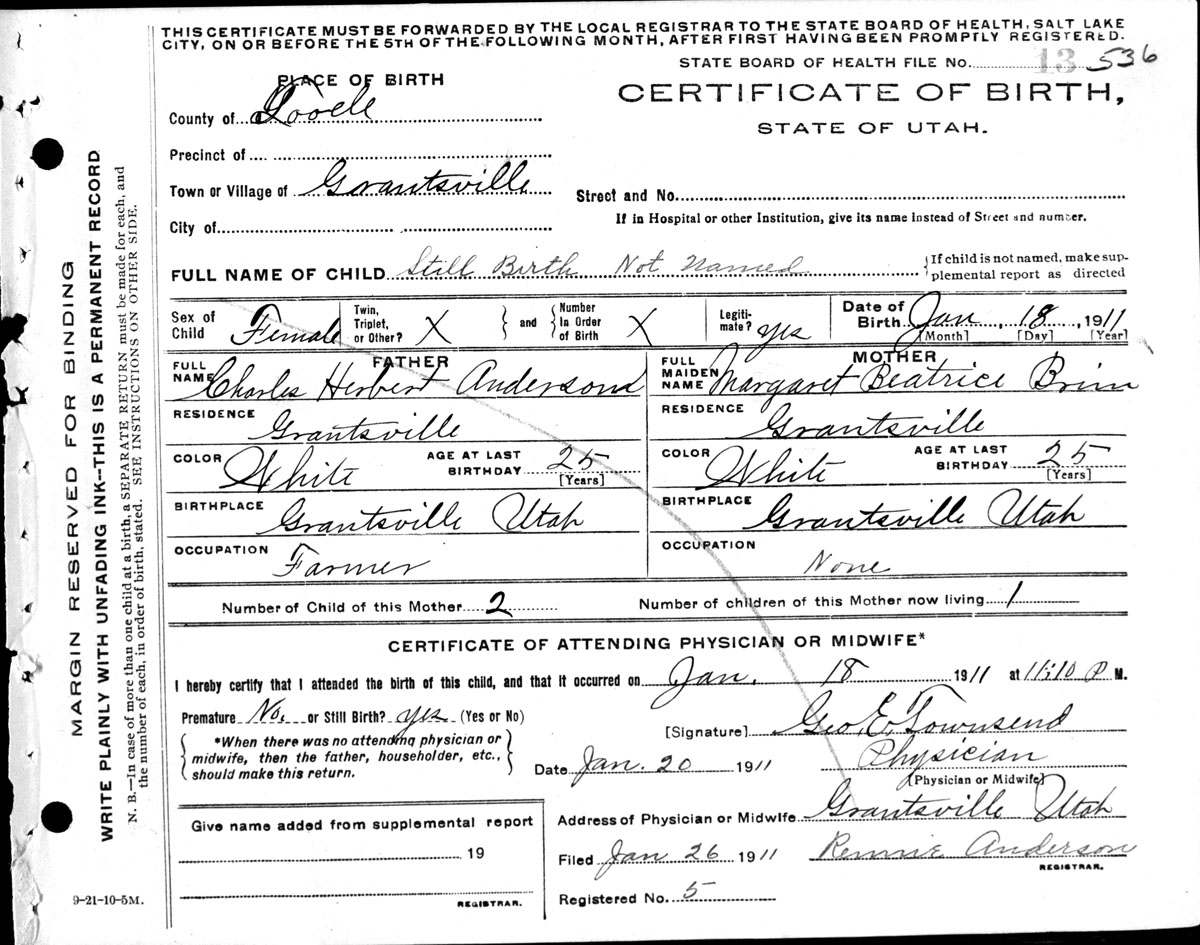 THIS CERTIFICATE MUST BE FORWARDED BY THE LOCAL REGISTRAR TO THE STATE BOARD OF HEALTH, SALT LAKE
CITY, ON OR BEFORE THE 5TH OF THE FOLLOWING MONTH, AFTER FIRST HAVING BEEN PROMPTLY REGISTERED.
STATE BOARD OF HEALTH FILE No. 13 536
PLACE OF BIRTH
CERTIFICATE OF BIRTH,
STATE OF UTAH.
County of Tooele
Precinct of
Town or Village of Grantsville
Street and No.
If in Hospital or other Institution, give its name instead of Street and number.
City of
FULL NAME OF CHILD Still Birth Not Named {If child is not named, make sup-
plemental report as directed
Sex of Child Female
Twin, Triplet, or Other? X } and { Number In Order of Birth X
Legiti-mate? yes
Date of Birth Jan, 18, 1911
[Month] [Day] [Year]
FATHER
FULL NAME Charles Herbert Anderson
RESIDENCE Grantsville
COLOR White AGE AT LAST BIRTHDAY 25
[Years]
BIRTHPLACE Grantsville Utah
OCCUPATION Farmer
MOTHER
FULL MAIDEN NAME Margaret Beatrice Brim
RESIDENCE Grantsville
COLOR White AGE AT LAST BIRTHDAY 25
[Years]
BIRTHPLACE Grantsville Utah
OCCUPATION None
Number of Child of this Mother 2 Number of children of this Mother now living 1
CERTIFICATE OF ATTENDING PHYSICIAN OR MIDWIFE*
I hereby certify that I attended the birth of this child, and that it occurred on Jan. 18 1911 at 11:10 P M.
Premature No. or Still Birth? yes (Yes or No)
{*When there was no attending physician or
midwife, then the father, householder, etc.,
should make this return.}
[Signature] Geo. E. Townsend
Date Jan. 20 1911 Physician
[Physician or Midwife]
Address of Physician or Midwife Grantsville Utah
Give name added from supplemental report
19
REGISTRAR.
Filed Jan 26 1911 Rennie Anderson
REGISTRAR.
Registered No. 5
MARGIN RESERVED FOR BINDING
WRITE PLAINLY WITH UNFADING INK--THIS IS A PERMANENT RECORD
N. B.—In case of more than one child at a birth, a SEPARATE RETURN must be made for each, and
the number of each, in order of birth, stated. SEE INSTRUCTIONS ON OTHER SIDE.
9-21-10-5M.